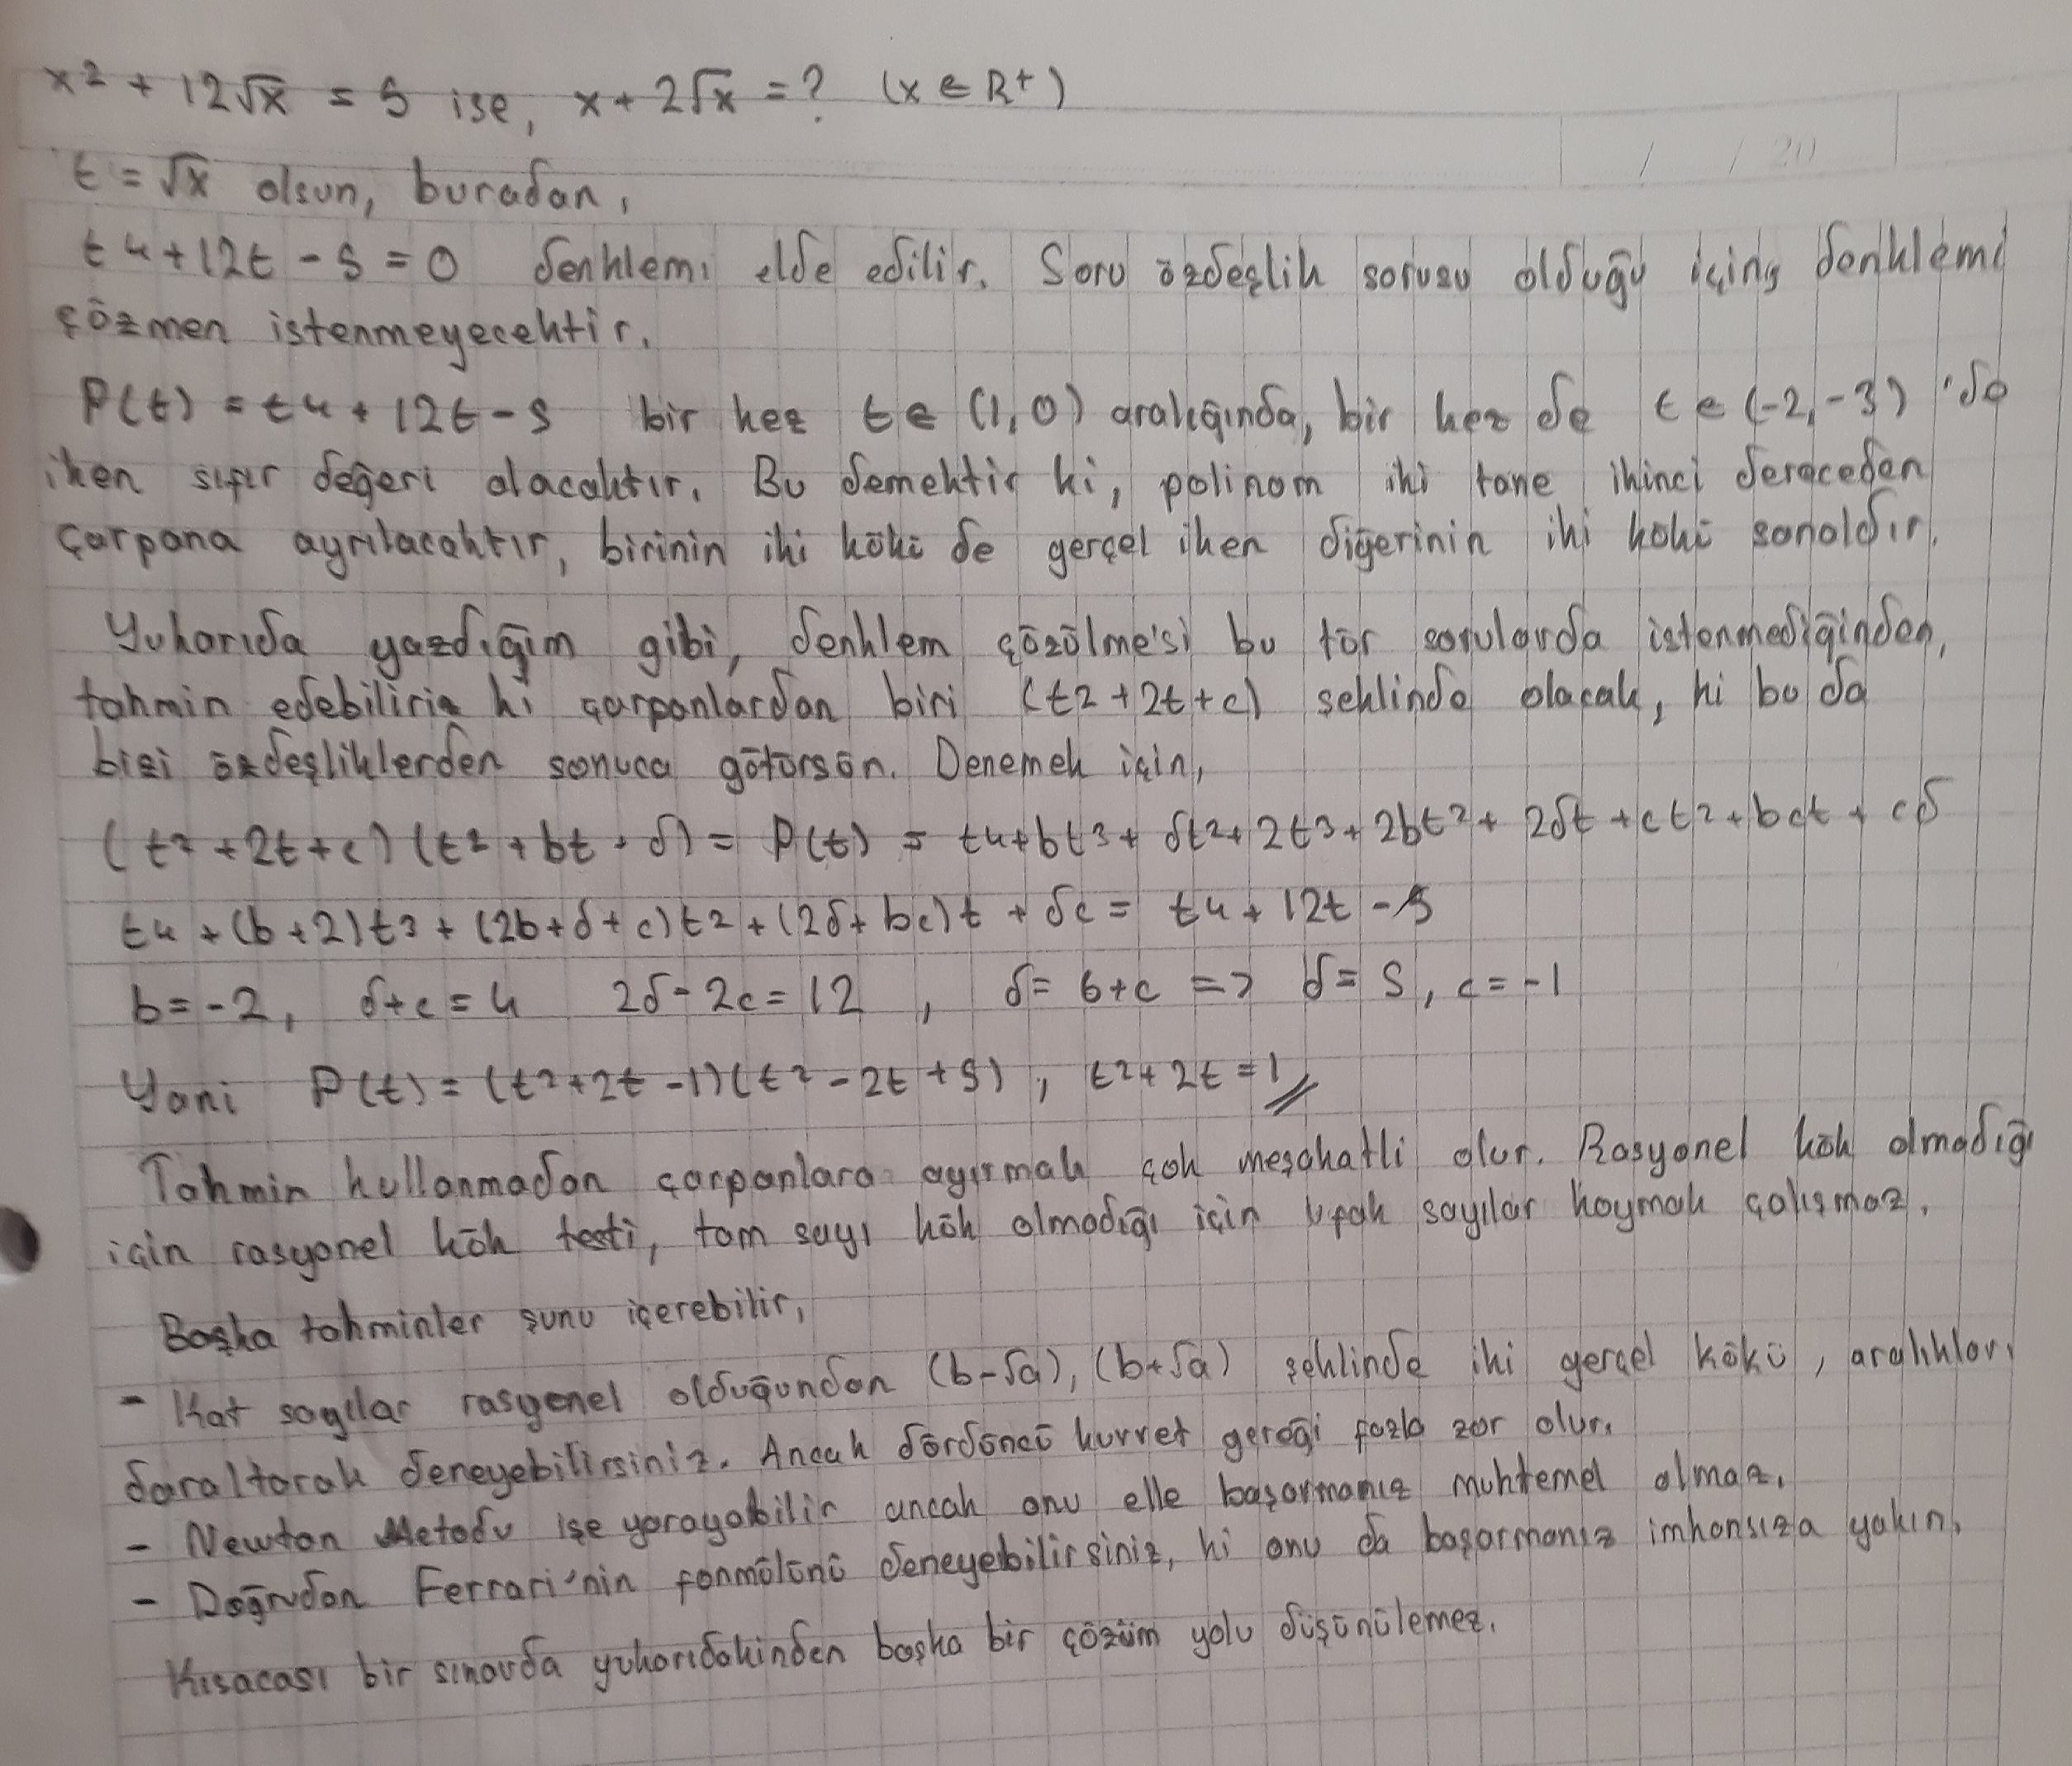 x² + 12√x = 5 ise, x + 2√x = ? (x ∈ R+)
/ / 20
t = √x olsun, buradan,
t4 + 12t - 5 = 0 denklemi elde edilir. Soru özdeşlik sorusu olduğu için, denklemi
çözmen istenmeyecektir.
P(t) = t4 + 12t - 5 bir kez t ∈ (1, 0) aralığında, bir kez de t ∈ (-2, -3) 'de
iken sıfır değeri alacaktır. Bu demektir ki, polinom iki tane ikinci dereceden
çarpana ayrılacaktır, birinin iki kökü de gerçel iken diğerinin iki kökü sanaldır.
Yukarıda yazdığım gibi, denklem çözülmesi bu tür sorularda istenmediğinden,
tahmin edebiliriz ki çarpanlardan biri (t2 + 2t + c) şeklinde olacak, ki bu da
bizi özdeşliklerden sonuca götürsün. Denemek için,
(t² + 2t + c) (t² + bt + d) = P(t) = t4 + bt3 + dt2 + 2t3 + 2bt2 + 2dt + ct2 + bct + cd
t4 + (b + 2)t3 + (2b + d + c)t2 + (2d + bc)t + dc = t4 + 12t - 5
b = -2, d + c = 4 2d - 2c = 12 , d = 6 + c => d = 5, c = -1
Yani P(t) = (t2 + 2t - 1)(t2 - 2t + 5) , t2 + 2t = 1
Tahmin kullanmadan çarpanlara ayırmak çok meşakatli olur. Rasyonel kök olmadığı
için rasyonel kök testi, tam sayı kök olmadığı için ufak sayılar koymak çalışmaz.
Başka tahminler şunu içerebilir,
- Kat sayılar rasyonel olduğundan (b-√a), (b+√a) şeklinde iki gerçel kökü, aralıkları
daraltarak deneyebilirsiniz. Ancak dördüncü kuvvet gereği fazla zor olur.
- Newton Metodu işe yarayabilir ancak onu elle başarmanız muhtemel olmaz.
- Doğrudan Ferrari'nin formülünü deneyebilirsiniz, ki onu da başarmanız imkansıza yakın.
Kısacası bir sınavda yukarıdakinden başka bir çözüm yolu düşünülemez.